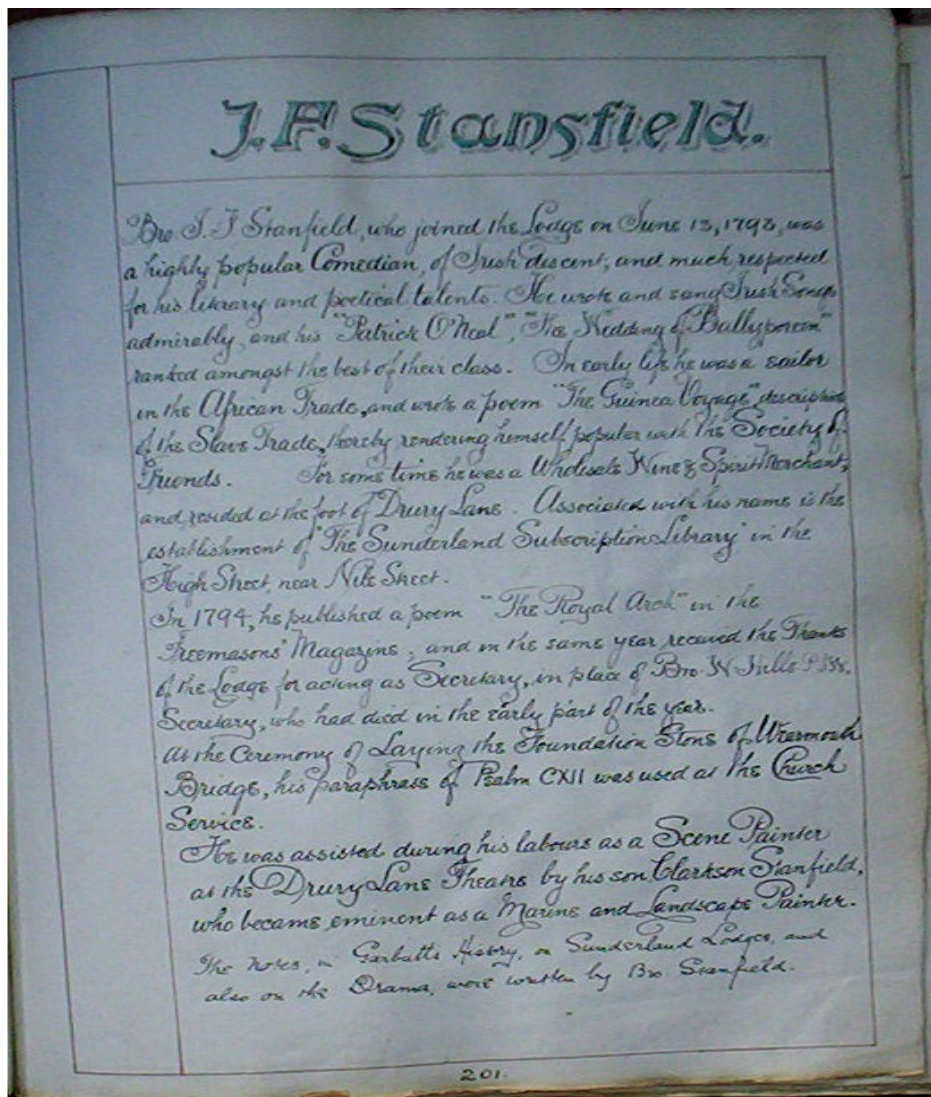 J.F. Stansfield.
Bro. J. F Stanfield, who joined the Lodge on June 13, 1793, was
a highly popular Comedian, of Irish descent, and much respected
for his literary and poetical talents. He wrote and sang Irish Songs
admirably, and his "Patrick O'Neal", "The Wedding of Ballyporeen"
ranked amongst the best of their class. In early life he was a sailor
in the African Trade, and wrote a poem "The Guinea Voyage", descriptive
of the Slave Trade, thereby rendering himself popular with the Society of
Friends. For some time he was a Wholesale Wine & Spirit Merchant,
and resided at the foot of Drury Lane. Associated with his name is the
establishment of "The Sunderland Subscription Library" in the
High Street, near Nile Street.
In 1794, he published a poem "The Royal Arch" in the
Freemasons' Magazine, and in the same year received the Thanks
of the Lodge for acting as Secretary, in place of Bro. W Hills
Secretary, who had died in the early part of the year.
At the Ceremony of Laying the Foundation Stone of Wearmouth
Bridge, his paraphrase of Psalm CXII was used at the Church
Service.
He was assisted during his labours as a Scene Painter
at the Drury Lane Theatre by his son, Clarkson Stanfield,
who became eminent as a Marine and Landscape Painter.
The Notes, in Garbutt's History, on Sunderland Lodges, and
also on the Drama, were written by Bro Stanfield.
201.